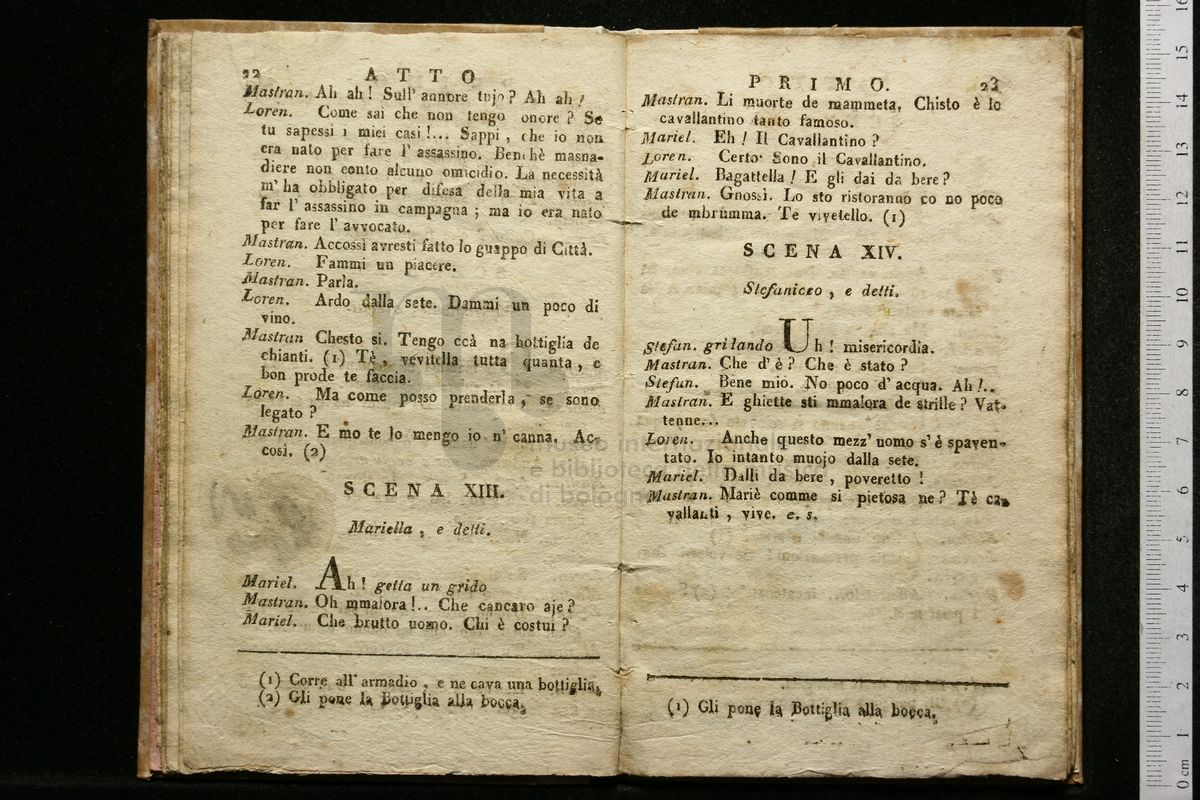 22 ATTO
Mastran. Ah ah! Sull' annore tujo? Ah ah!
Loren. Come sai che non tengo onore? Se
tu sapessi i miei casi!... Sappi, che io non
era nato per fare l' assassino. Benchè masna-
diere non conto alcuno omicidio. La necessità
m' ha obbligato per difesa della mia vita a
far l' assassino in campagna; ma io era nato
per fare l' avvocato.
Mastran. Accossì avresti fatto lo guappo di Città.
Loren. Fammi un piacere.
Mastran. Parla.
Loren. Ardo dalla sete. Dammi un poco di
vino.
Mastran Chesto si. Tengo ccà na bottiglia de
chianti. (1) Tè, vevitella tutta quanta, e
bon prode te faccia.
Loren. Ma come posso prenderla, se sono
legato?
Mastran. E mo te lo mengo io n' canna. Ac-
così. (2)
SCENA XIII.
Mariella, e detti.
Mariel. Ah! getta un grido
Mastran. Oh mmalora!.. Che cancaro aje?
Mariel. Che brutto uomo. Chi è costui?
(1) Corre all' armadio, e ne cava una bottiglia.
(2) Gli pone la Bottiglia alla bocca.
PRIMO. 23
Mastran. Li muorte de mammeta, Chisto è lo
cavallantino tanto famoso.
Mariel. Eh! Il Cavallantino?
Loren. Certo. Sono il Cavallantino.
Mariel. Bagattella! E gli dai da bere?
Mastran. Gnossì. Lo sto ristoranno co no poco
de mbrumma. Te vivetello. (1)
SCENA XIV.
Stefaniceo, e detti.
Stefan. gritando Uh! misericordia.
Mastran. Che d' è? Che è stato?
Stefan. Bene mio. No poco d' acqua. Ah!..
Mastran. E ghiette sti mmalora de strille? Vat-
tenne...
Loren. Anche questo mezz' uomo s' è spaven-
tato. Io intanto muojo dalla sete.
Mariel. Dalli da bere, poveretto!
Mastran. Mariè comme si pietosa ne? Tè ca-
vallanti, vive. e. s.
(1) Gli pone la Bottiglia alla bocca.
museo internazionale
e biblioteca della musica
di bologna